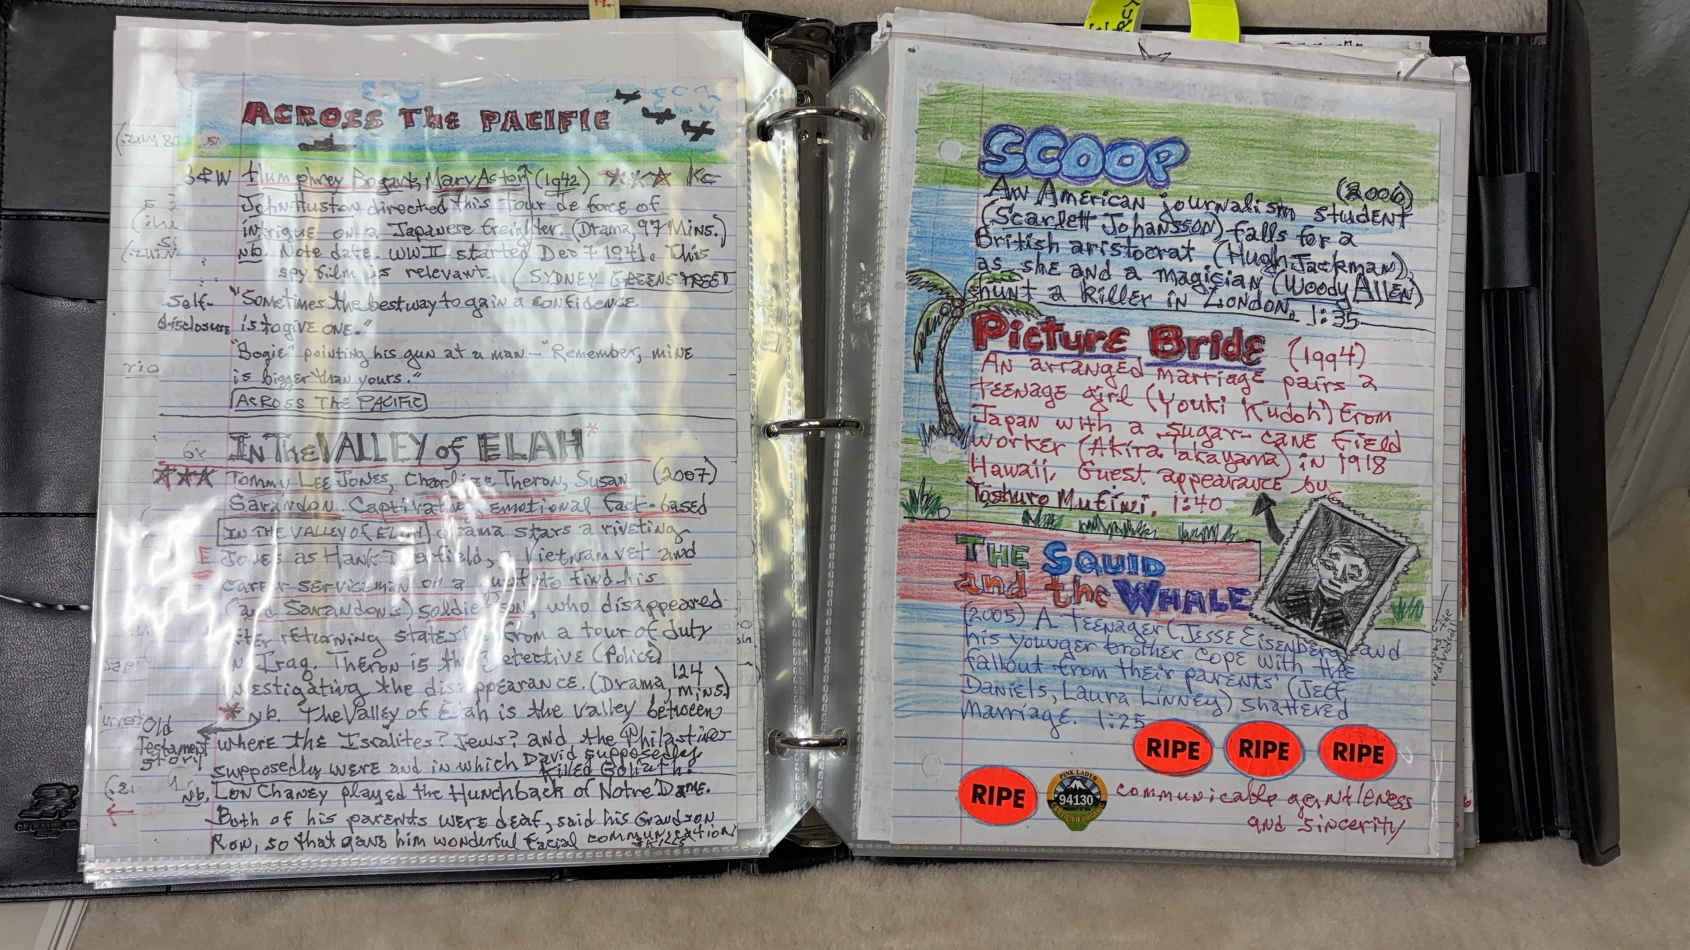 ACROSS THE PACIFIC
B&W Humphrey Bogart, Mary Astor (1942)
John Huston directed this tour de force of
intrigue on a Japanese freighter. (Drama, 97 Mins.)
nb. Note date. WW II started Dec 7 1941. This
spy film is relevant. (SYDNEY GREENSTREET
Self-disclosure
"Sometimes the best way to gain a confidence
is to GIVE ONE."
"Bogie" pointing his gun at a man - "Remember, mine
is bigger than yours."
ACROSS THE PACIFIC
IN THE VALLEY of ELAH*
Tommy LEE JONES, Charlize Theron, Susan (2007)
Sarandon. Captivating emotional fact-based
IN THE VALLEY Of ELAH drama stars a riveting
Jones as Hank Deerfield, a Vietnam vet and
career serviceman on a to find his
(and Sarandon's) soldier son, who disappeared
after returning stateside from a tour of duty
in Iraq. Theron is the Detective (Police)
investigating the disappearance. (Drama, 124 mins.)
* Nb. The Valley of Elah is the valley between
Old Testament story
where the Isralites? Jews? and the Philastines
supposedly were and in which David supposedly
killed Goliath.
1. Nb. Lon Chaney played the Hunchback of Notre Dame.
Both of his parents were deaf, said his Grandson
Ron, so that gave him wonderful facial communication
SCOOP
(2006)
An American journalism student
(Scarlett Johansson) falls for a
British aristocrat (Hugh Jackman),
as she and a magician (Woody Allen)
hunt a killer in London. 1:35
Picture Bride (1994)
An arranged marriage pairs a
teenage girl (Youki Kudoh) from
Japan with a sugar-cane field
worker (Akira Takayama) in 1918
Hawaii. Guest appearance by
Toshuro Mufini. 1:40
THE SQUID
and the WHALE
(2005) A teenager (Jesse Eisenberg) and
his younger brother cope with the
fallout from their parents' (Jeff
Daniels, Laura Linney) shattered
marriage. 1:25
RIPE RIPE RIPE
RIPE
PINK LADY®
94130
communicable gentleness
and sincerity